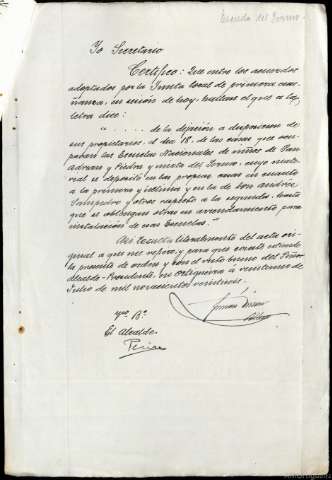 Escuela del Tremo.
Yo Secretario
Certifico: Que entre los acuerdos
adoptados por la Junta local de primera ense-
ñanza, en sesión de hoy, hállase el que a la
letra dice:
" . . . . de la dejación a disposición de
sus propietarios el día 18, de las casas que ocu-
paban las Escuelas Nacionales de niños de San
Adrian y niñas y mixta del , cuyo mate-
rial se depositó en las propias casas en cuanto
a la primera y última y en la de Don Andrés
Sampedro y otras respecto a la segunda, hasta
que se obtengan otras en arrendamiento para
instalación de esas Escuelas."
Así resulta literalmente del acta ori-
ginal a que me refiero; y para que conste extiendo
la presente de orden y con el visto bueno del Señor
Alcalde-Presidente, en Ortigueira a veintiuno de
Julio de mil novecientos veintitrés.
Vº Bº
El Alcalde,